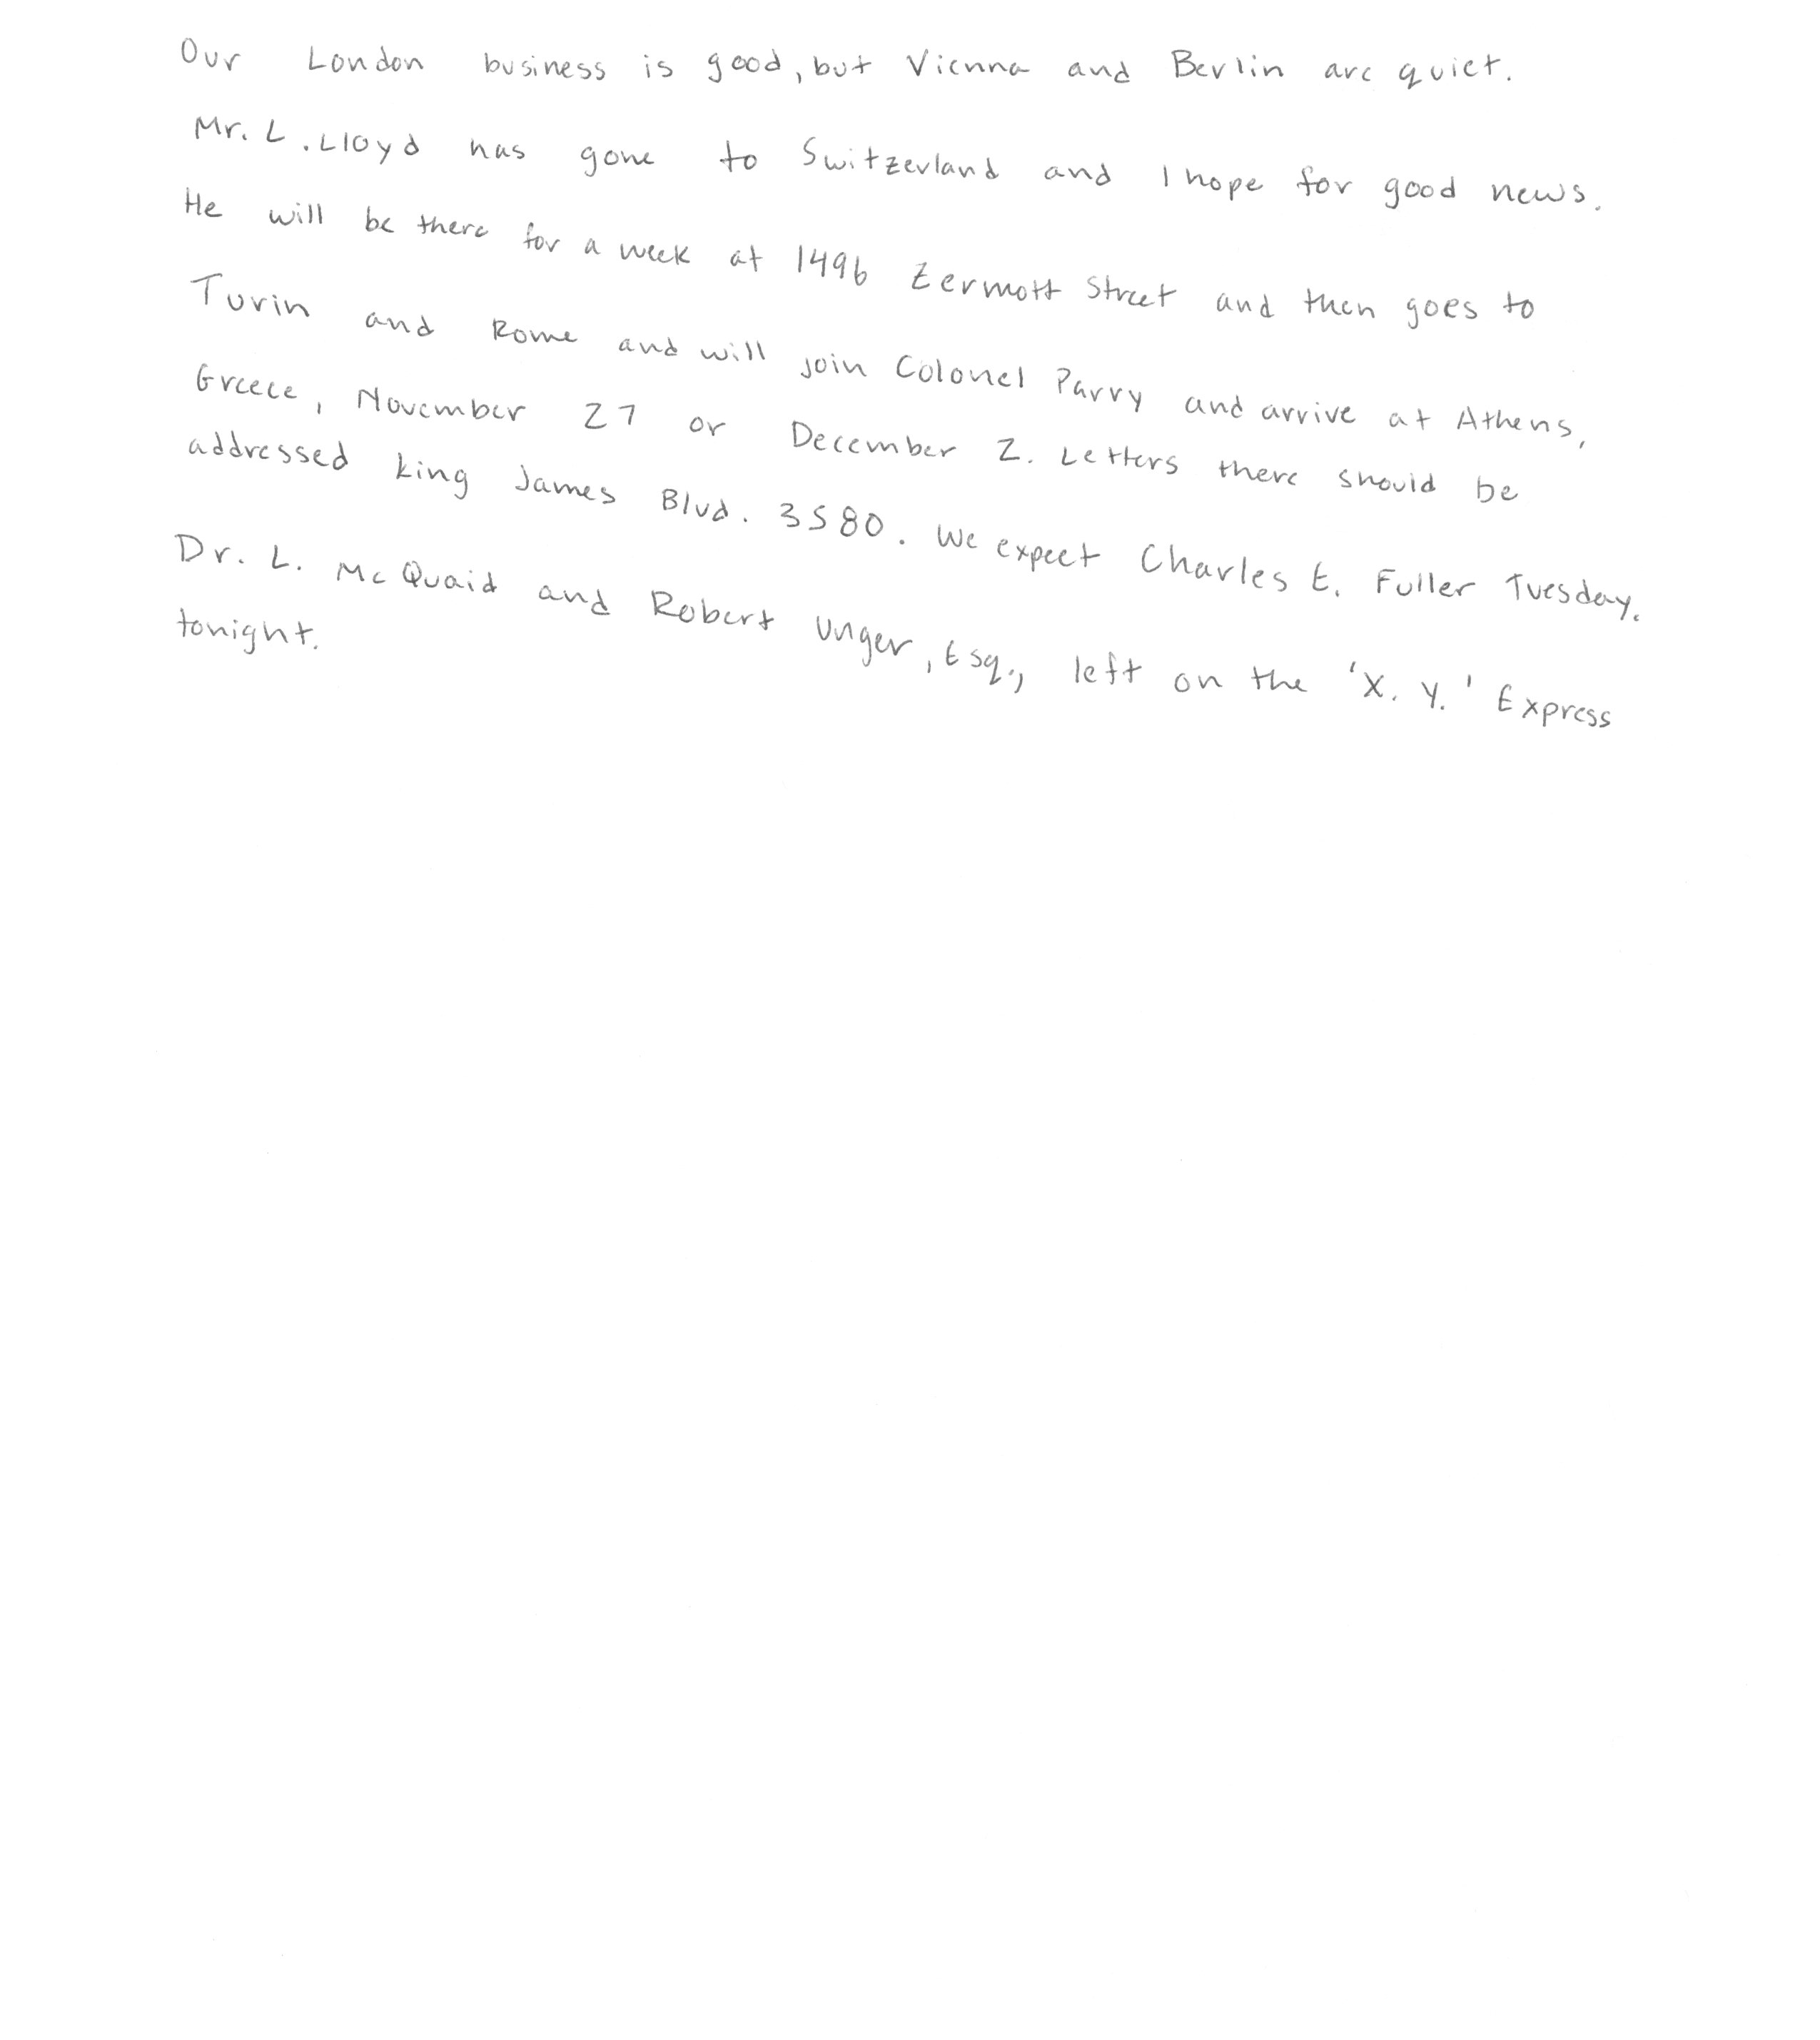 Our London business is good, but Vienna and Berlin are quiet.
Mr. L. Lloyd has gone to Switzerland and I hope for good news.
He will be there for a week at 1496 Zermott Street and then goes to
Turin and Rome and will join Colonel Parry and arrive at Athens,
Greece, November 27 or December 2. Letters there should be
addressed King James Blvd. 3580. We expect Charles E. Fuller Tuesday.
Dr. L. McQuaid and Robert Unger, Esq., left on the 'X. Y.' Express
tonight.